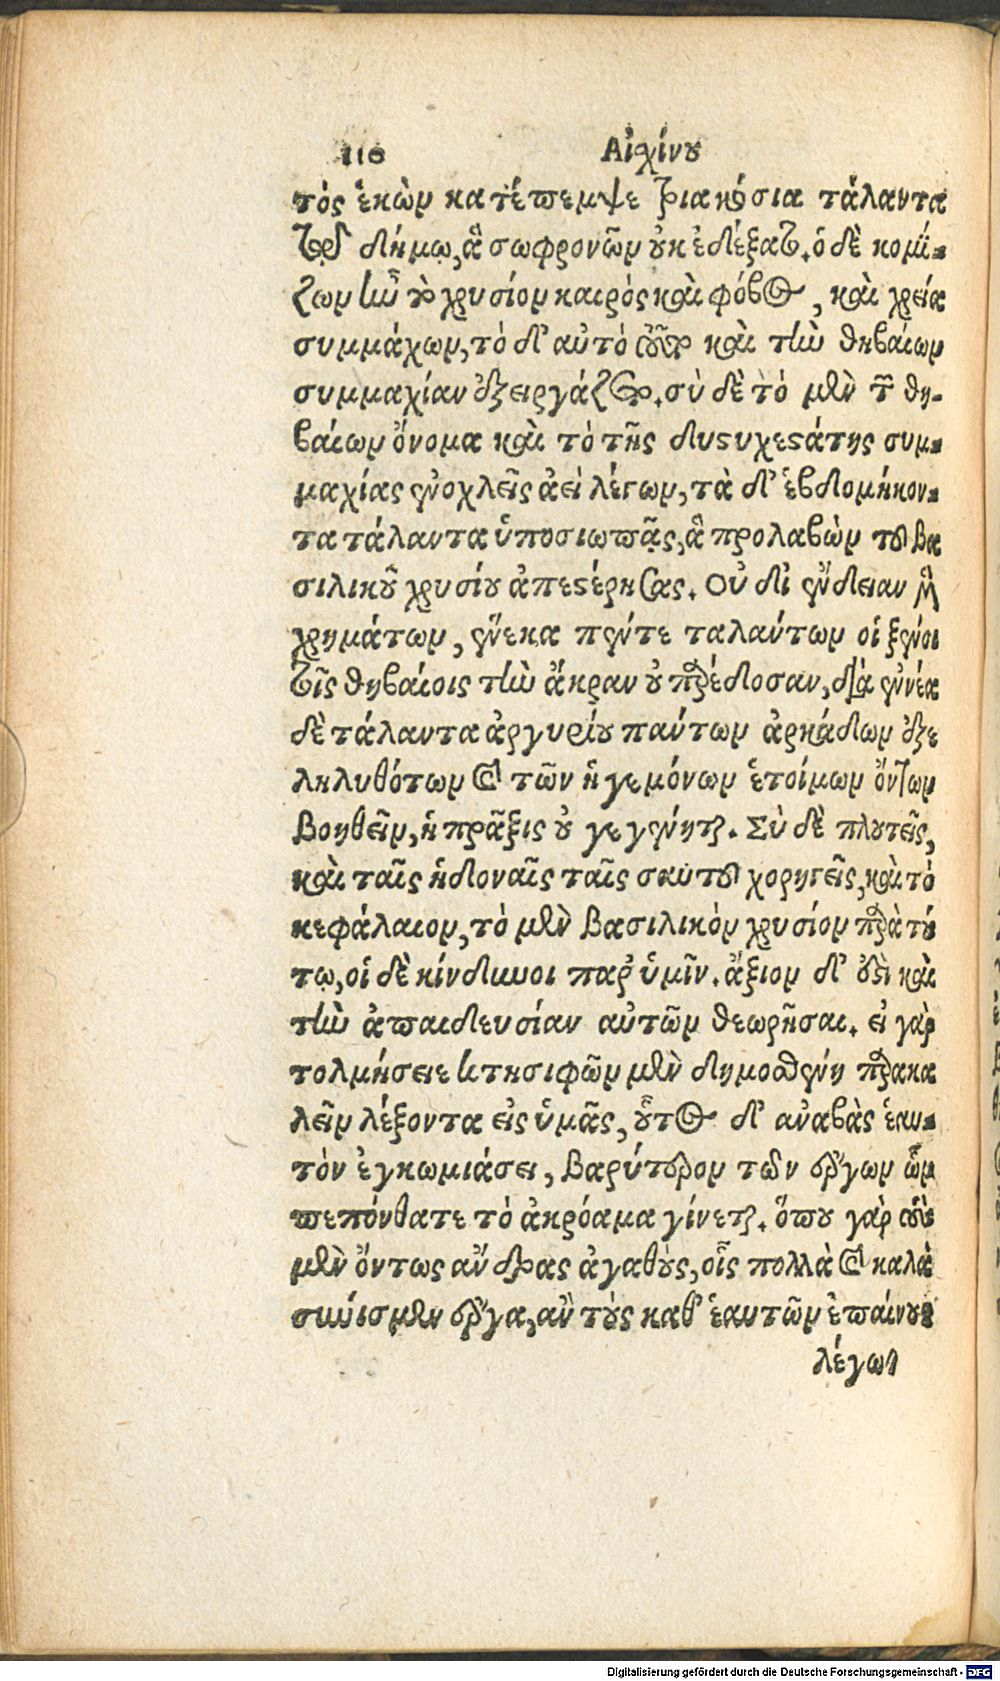 110 Αἰσχίνου
τὸς ἑκὼν κατέπεμψε τριακόσια τάλαντα
τῷ δήμῳ, ἃ σωφρονῶν οὐκ ἐδέξατο. ὁ δὲ κομί-
ζων ἦν τὸ χρυσίον καιρὸς καὶ φόβος, καὶ χρεία
συμμάχων, τὸ δ' αὐτὸ τοῦτο καὶ τὴν θηβαίων
συμμαχίαν ἐξειργάζετο. σὺ δὲ τὸ μὲν τῶν θη-
βαίων ὄνομα καὶ τὸ τῆς δυστυχεστάτης συμ-
μαχίας ἐνοχλεῖς ἀεὶ λέγων, τὰ δ' ἑβδομήκον-
τα τάλαντα ὑποσιωπᾷς, ἃ προλαβὼν τοῦ βα
σιλικοῦ χρυσίου ἀπεστέρησας. Οὐ δι ἔνδειαν μὲν
χρημάτων, ἕνεκα πέντε ταλάντων οἱ ξένοι
τοῖς θηβαίοις τὴν ἄκραν οὐ παρέδοσαν, διὰ ἐννέα
δὲ τάλαντα ἀργυρίου πάντων ἀρκάδων ἐξε
ληλυθότων καὶ τῶν ἡγεμόνων ἑτοίμων ὄντων
βοηθεῖν, ἡ πρᾶξις οὐ γεγένηται. Σὺ δὲ πλουτεῖς,
καὶ ταῖς ἡδοναῖς ταῖς σαυτοῦ χορηγεῖς, καὶ τὸ
κεφάλαιον, τὸ μὲν βασιλικὸν χρυσίον παρὰ τού
τῳ, οἱ δὲ κίνδυνοι παρ' ὑμῖν. ἄξιον δ' ἐστὶ καὶ
τὴν ἀπαιδευσίαν αὐτῶν θεωρῆσαι. εἰ γὰρ
τολμήσειε κτησιφῶν μὲν δημοσθένη παρακα
λεῖν λέξοντα εἰς ὑμᾶς, οὗτος δ' ἀναβὰς ἑαυ-
τὸν ἐγκωμιάσει, βαρύτερον τῶν ἔργων ὧν
πεπόνθατε τὸ ἀκρόαμα γίνεται. ὅπου γὰρ τοὺς
μὲν ὄντως ἄνδρας ἀγαθοὺς, οἷς πολλὰ καὶ καλὰ
σύνισμεν ἔργα, ἂν τοὺς καθ' ἑαυτῶν ἐπαίνους
λέγωσι
Digitalisierung gefördert durch die Deutsche Forschungsgemeinschaft - DFG